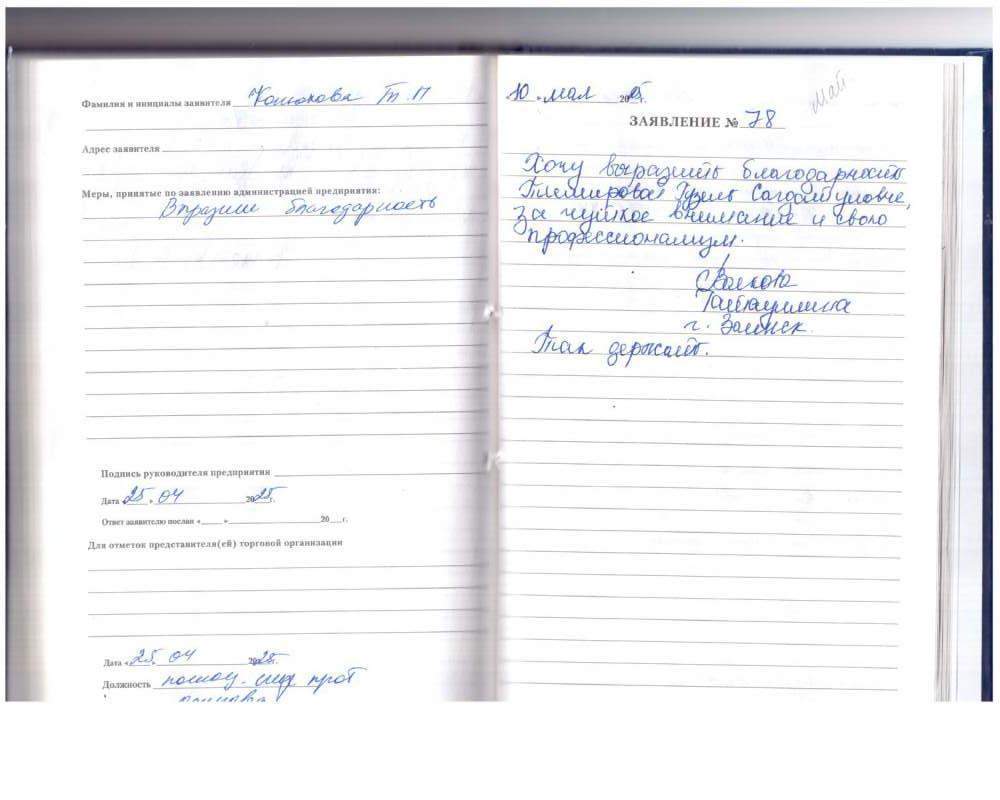 Фамилия и инициалы заявителя Конюхова Т.П
Адрес заявителя
Меры, принятые по заявлению администрацией предприятия:
Выразили благодарность
Подпись руководителя предприятия
Дата «25. 04 2025г.
Ответ заявителю послан « » 20 г.
Для отметок представителя(ей) торговой организации
Дата «25. 04 2025г.
Должность
10 . мая 2025г.
май
ЗАЯВЛЕНИЕ № 78
Хочу выразить благодарность
Темировой Гузель
за чуткое внимание и свой
профессионализм.
Волкова
г. Заинск.
Так держать.